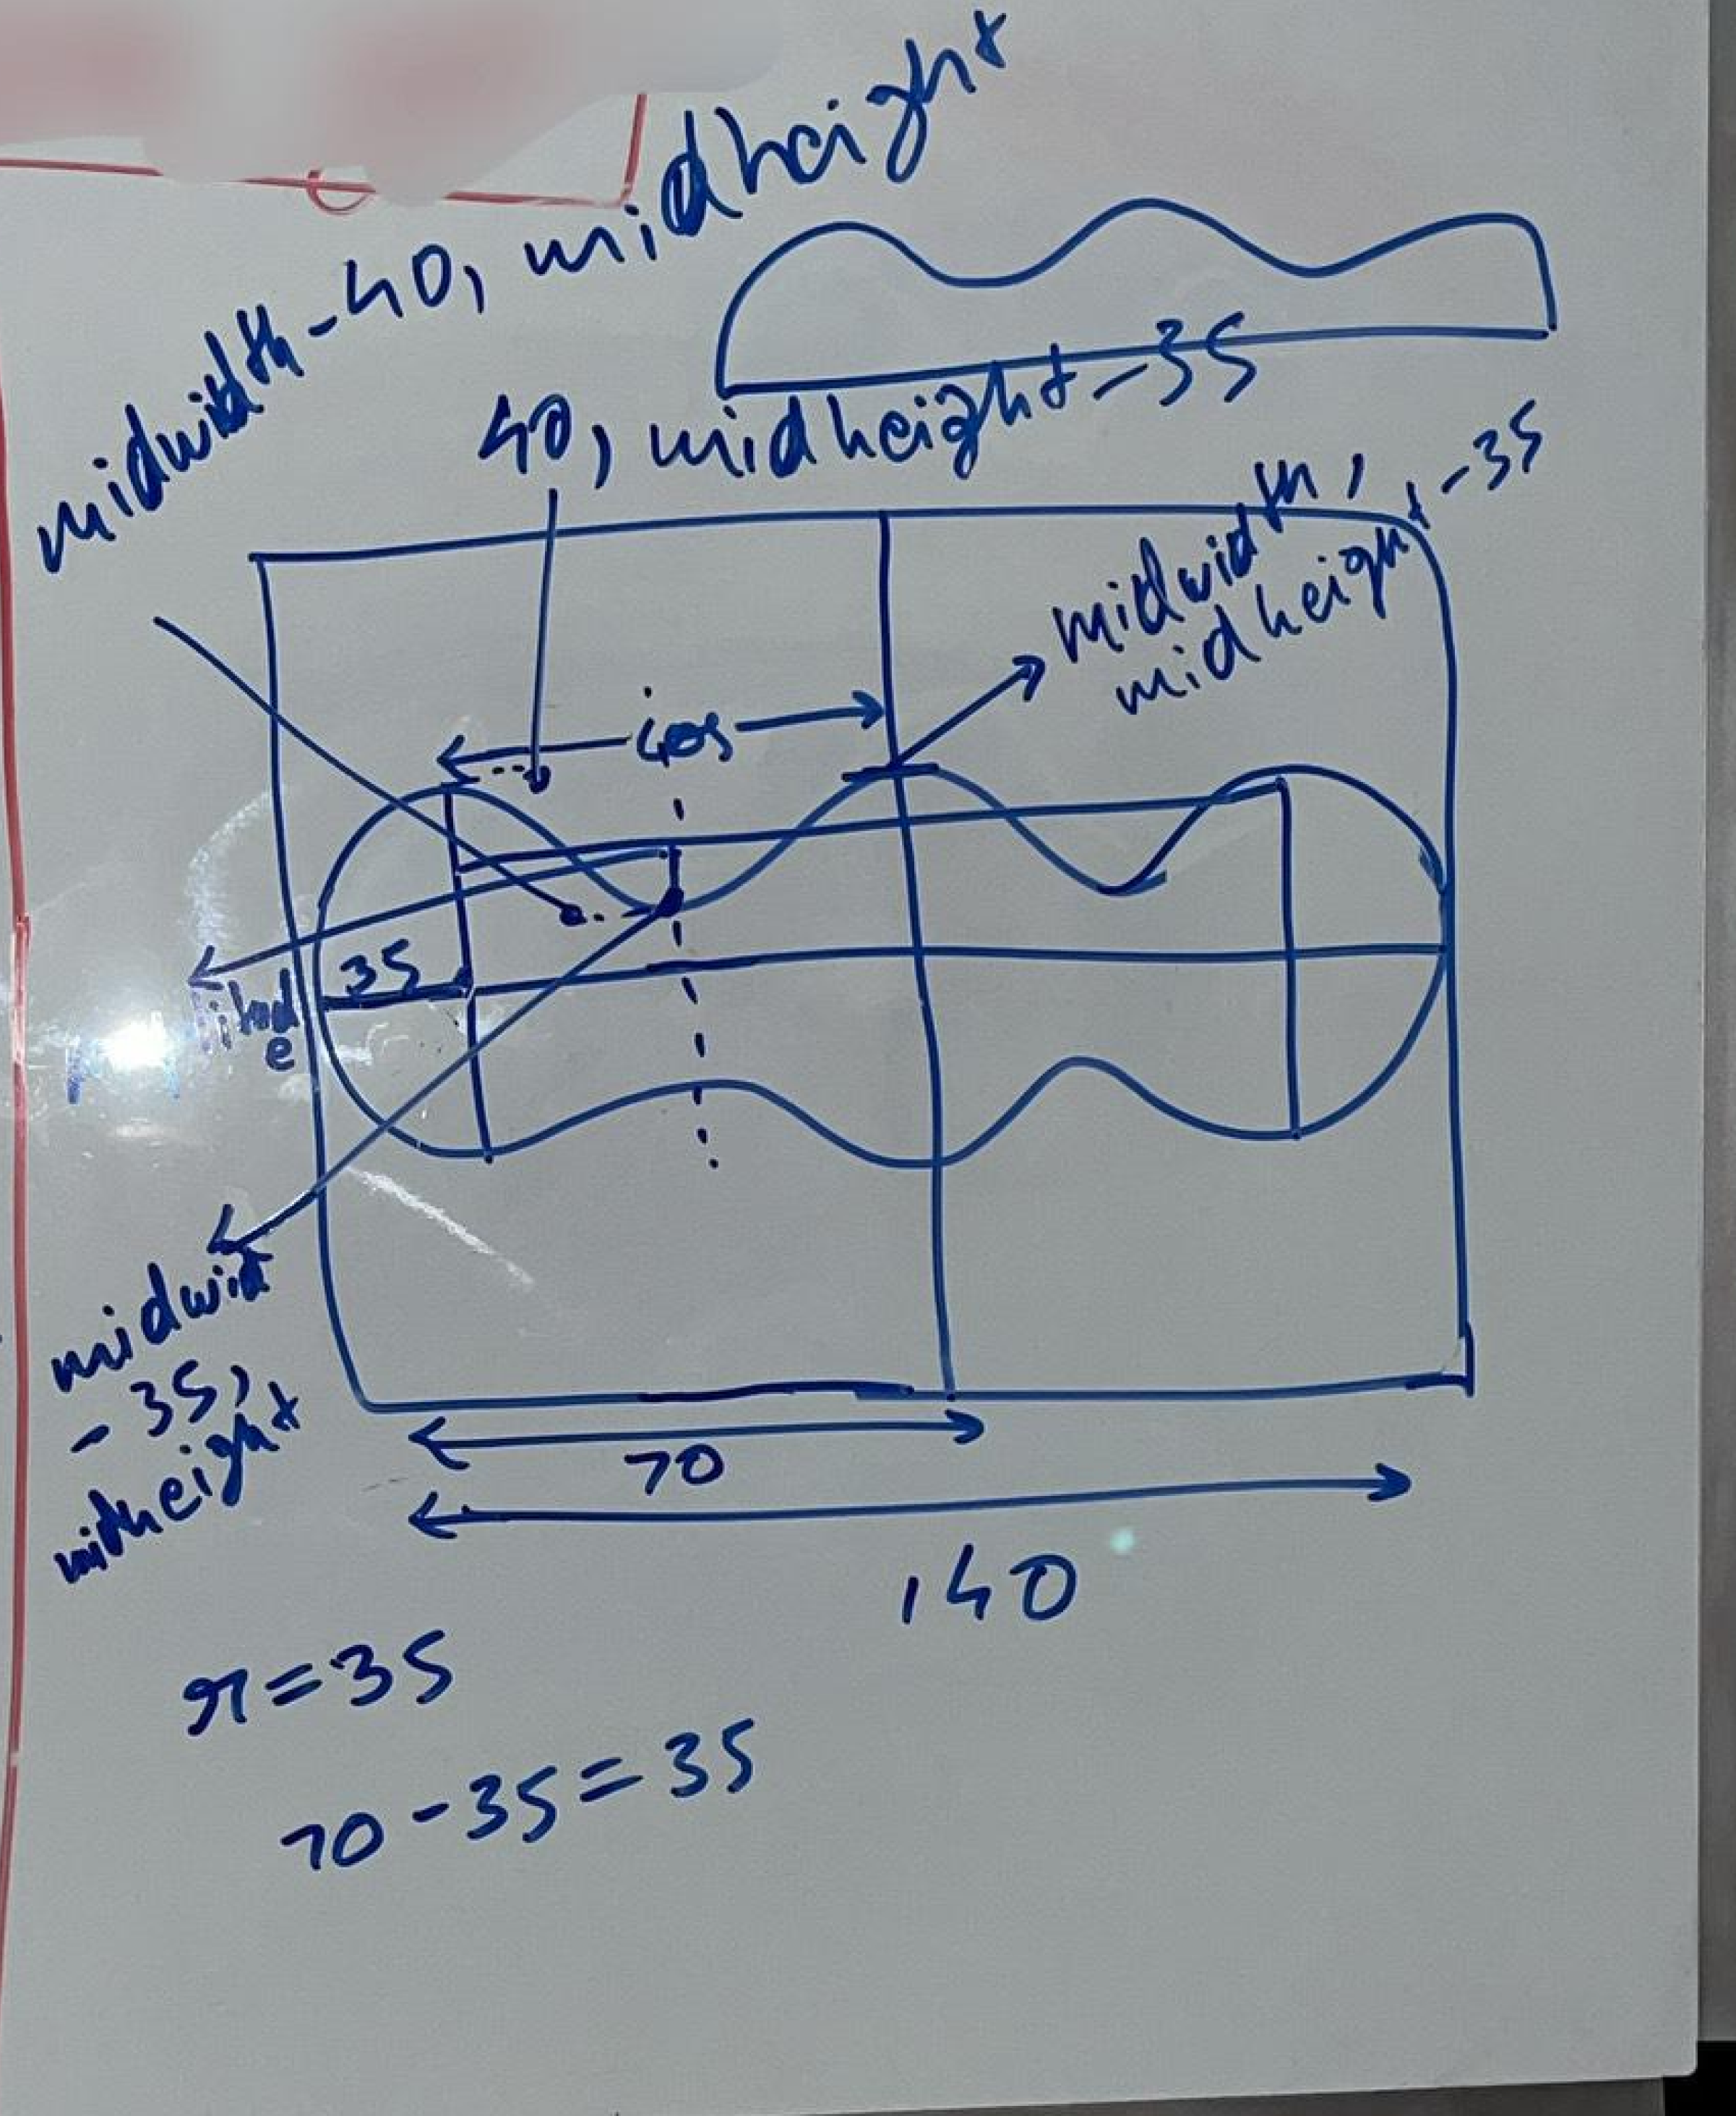 midwidth-40, midheight
40, midheight-35
midwidth,
midheight-35
35
midwid
- 35,
midheight
70
140
r=35
70-35=35